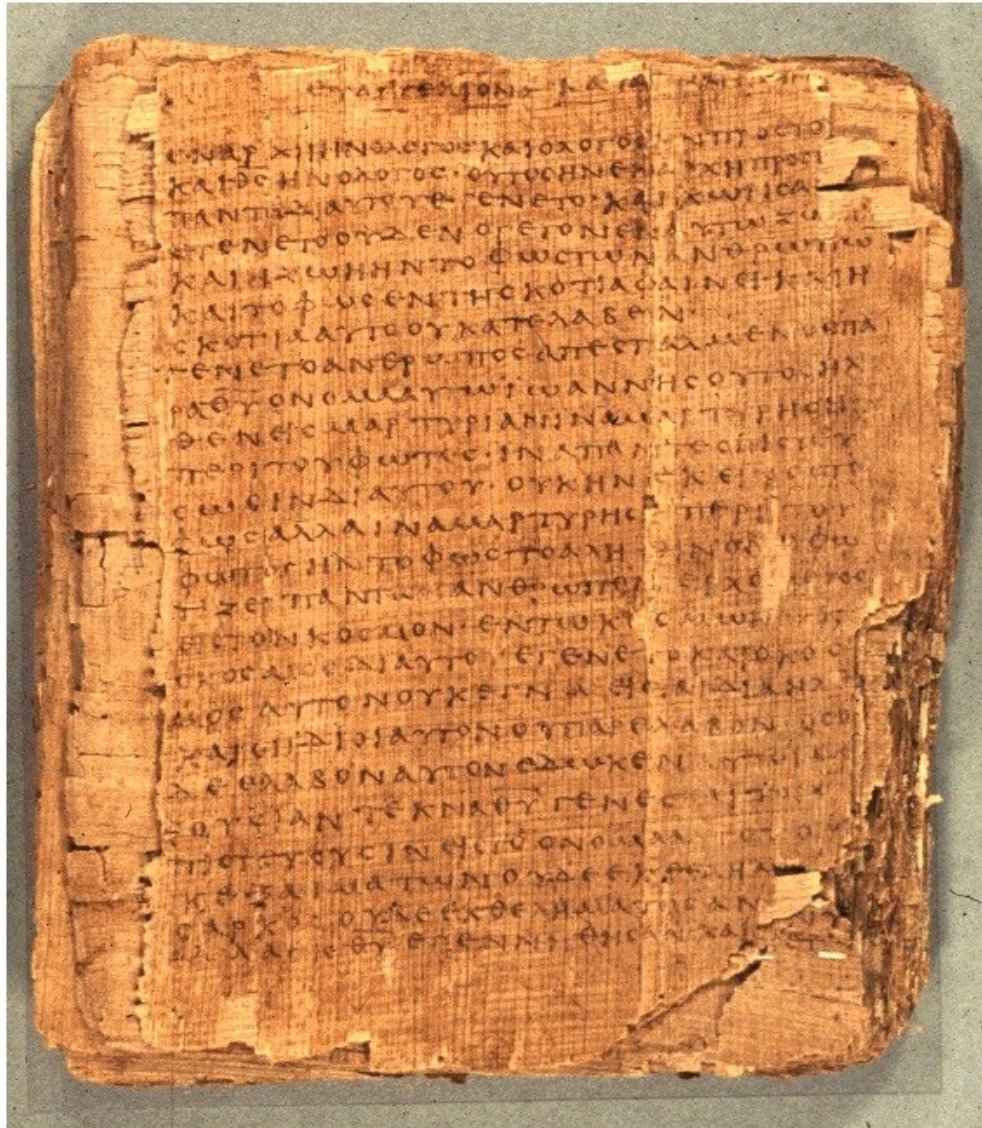 ευαγγελιον κατα
εναρχηηνολογοσκαιολογοσ
καιθσηνολογοσ·ουτοσηνεναρχηπροστ
πανταδιαυτουεγενετο·καιχωρισα
εγενετοουδενογεγονενεναυτωζω
καιηζωηηντοφωστωνανθρωπω
καιτοφωσεντησκοτιαφαινεικαιη
σκοτιααυτοουκατελαβεν·
γενετοανθρωποσαπεσταλμενοσπα
ραθυονομααυτωϊωαννησουτοσηλ
θενεισμαρτυριανιναμαρτυρηση
περιτουφωτοσ·ιναπαντεσπιστευ
σωσινδιαυτου·ουκηνεκεινοστο
φωσαλλαιναμαρτυρησηπεριτου
φωτοσηντοφωστοαληθεινονοφω
τιζειπανταανθρωπονερχομενον
ειστονκοσμον·εντωκοσμωηνκαιο
κοσμοσδιαυτουεγενετοκαιοκοσ
μοσαυτονουκεγνωεισταϊδιαηλθε
καιοιϊδιοιαυτονουπαρελαβον·οσοι
δεελαβοναυτονεδωκεναυτοισε
ξουσιαντεκναθυγενεσθαιτοισ
πιστευουσινειστοονομααυτουοι
ουκεξαιματωνουδεεκθελημα
σαρκοσουδεεκθεληματοσαν
αλλαεκθυεγεννηθησανκαι